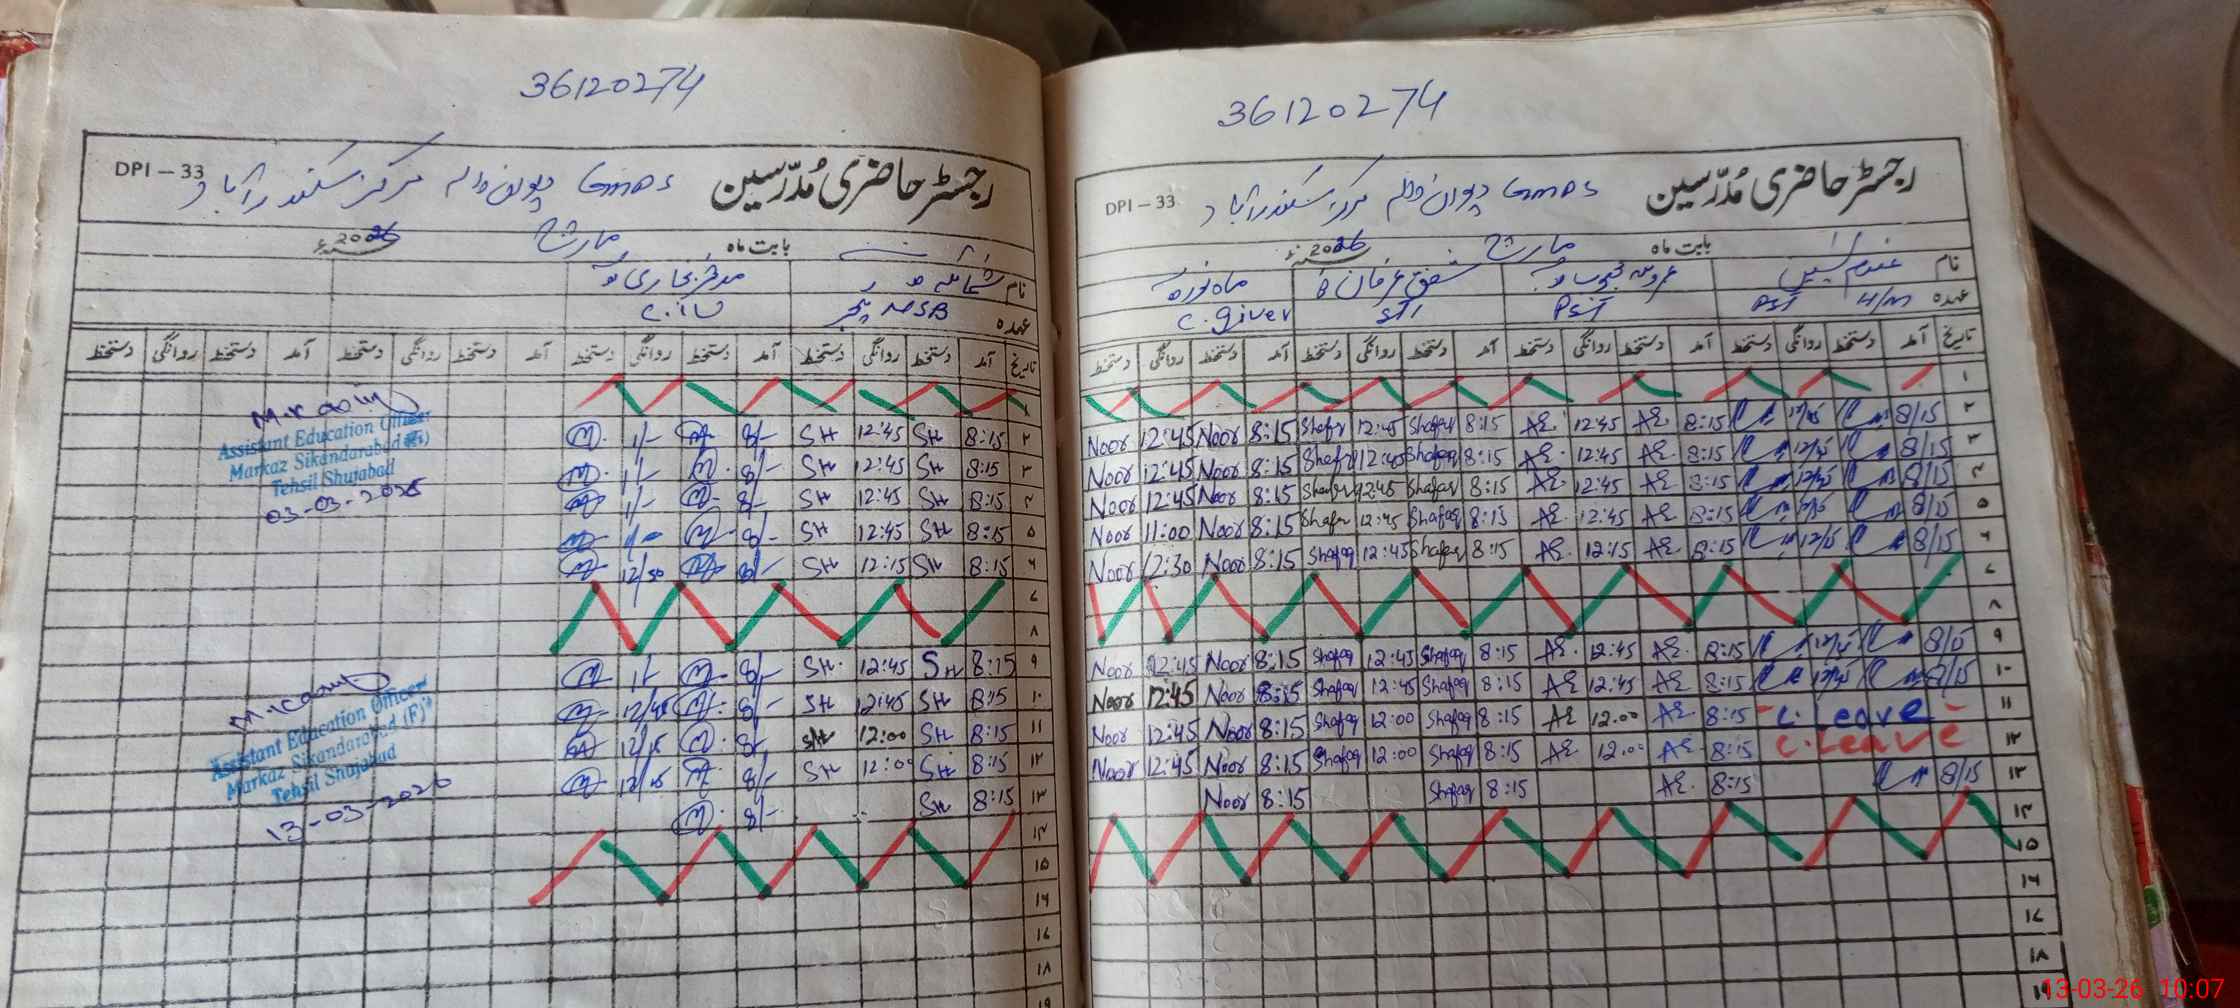 36120274
DPI – 33 رجسٹر حاضری مُدرّسین GMPS مرکز سکندرآباد
بابت ماہ مارچ 2026
نام
عہدہ C.
تاریخ آمد دستخط روانگی دستخط آمد دستخط روانگی دستخط آمد دستخط روانگی دستخط آمد دستخط روانگی دستخط
۱
۲ 8:15 SH 12:45 SH 8/- 1/-
۳ 8:15 SH 12:45 SH 8/- 1/-
۴ 8:15 SH 12:45 SH 8/- 1/-
۵ 8:15 SH 12:45 SH 8/-
۶ 8:15 SH 12:15 SH 8/- 12/30
۷
۸
۹ 8:15 SH 12:45 SH 8/- 1/-
۱۰ 8:15 SH 12:45 SH 8/- 12/45
۱۱ 8:15 SH 12:00 SH 8/- 12/15
۱۲ 8:15 SH 12:00 SH 8/- 12/15
۱۳ 8:15 SH 8/-
۱۴
۱۵
۱۶
۱۷
۱۸
۱۹
Assistant Education Officer
Markaz Sikandarabad
Tehsil Shujabad
03-03-2026
Assistant Education Officer
Markaz Sikandarabad (F)
Tehsil Shujabad
13-03-2026
36120274
DPI – 33 رجسٹر حاضری مُدرّسین GMPS مرکز سکندرآباد
بابت ماہ مارچ 2026
نام شفق عرفان ماہ نور
عہدہ H/M PST PST STI C.giver
تاریخ آمد دستخط روانگی دستخط آمد دستخط روانگی دستخط آمد دستخط روانگی دستخط آمد دستخط روانگی دستخط
۱
۲ 8/15 12/45 8:15 AE 12:45 AE 8:15 Shafaq 12:45 Shafaq 8:15 Noor 12:45 Noor
۳ 8/15 12/45 8:15 AE 12:45 AE 8:15 Shafaq 12:45 Shafaq 8:15 Noor 12:45 Noor
۴ 8/15 12/45 8:15 AE 12:45 AE 8:15 Shafaq 12:45 Shafaq 8:15 Noor 12:45 Noor
۵ 8/15 8:15 AE 12:45 AE 8:15 Shafaq 12:45 Shafaq 8:15 Noor 11:00 Noor
۶ 8/15 12/15 8:15 AE 12:15 AE 8:15 Shafaq 12:45 Shafaq 8:15 Noor 12:30 Noor
۷
۸
۹ 8/15 12/45 8:15 AE 12:45 AE 8:15 Shafaq 12:45 Shafaq 8:15 Noor 12:45 Noor
۱۰ 8/15 12/45 8:15 AE 12:45 AE 8:15 Shafaq 12:45 Shafaq 8:15 Noor 12:45 Noor
۱۱ - C. Leave - 8:15 AE 12.00 AE 8:15 Shafaq 12:00 Shafaq 8:15 Noor 12:45 Noor
۱۲ C. Leave 8:15 AE 12.00 AE 8:15 Shafaq 12:00 Shafaq 8:15 Noor 12:45 Noor
۱۳ 8/15 8:15 AE 8:15 Shafaq 8:15 Noor
۱۴
۱۵
۱۶
۱۷
۱۸
۱۹
13-03-26 10:07